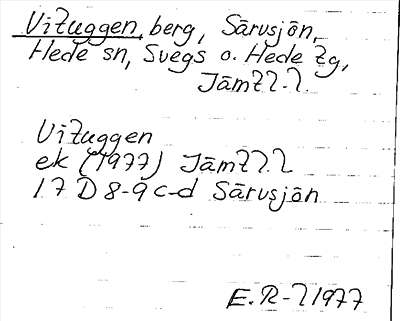 Vituggen, berg, Särvsjön,
Hede sn, Svegs o. Hede tg,
Jämtl. l.
Vituggen
ek (1977) Jämtl. l
17 D 8-9 c-d Särvsjön
E. R-l 1977